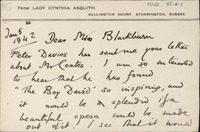 FROM LADY CYNTHIA ASQUITH
SULLINGTON COURT, STORRINGTON, SUSSEX
Jan 5
1942 Dear Miss Blackburn
Peter Davies has sent me your letter
about Mr Coates. I am so interested
to hear that he has found
"The Boy David" so inspiring, and
it would be splendid if a
beautiful opera could be made
out of it. I see that it would